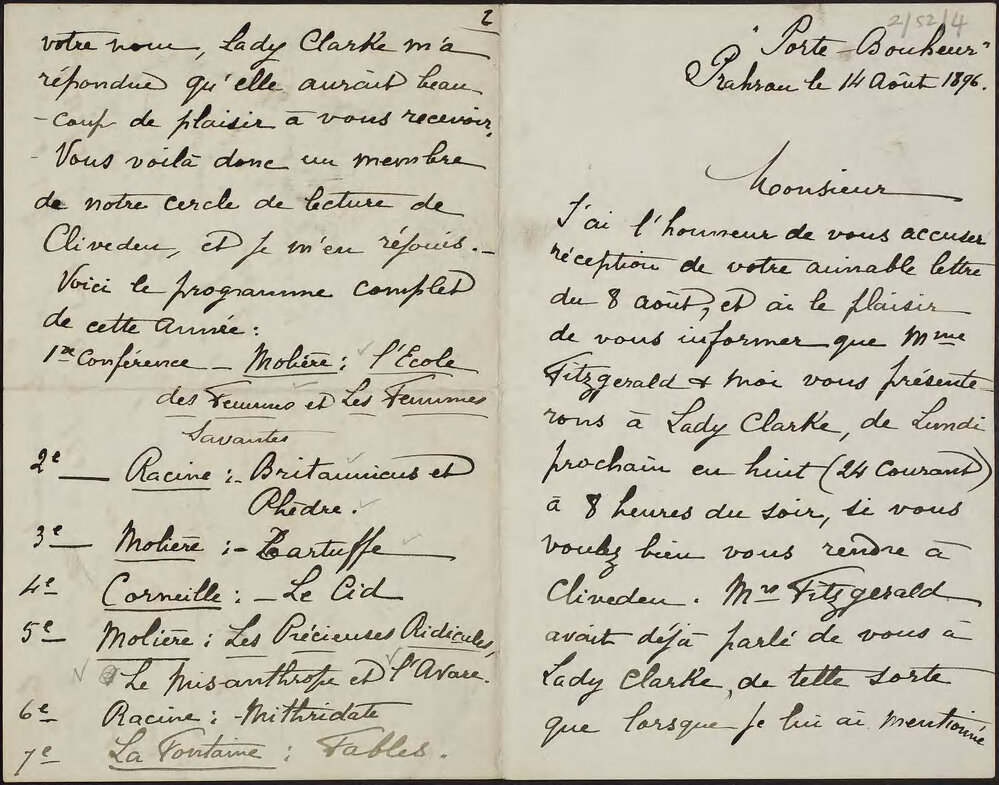 2/52/4
"Porte-Bonheur"
Prahran le 14 Août 1896.
Monsieur
J'ai l'honneur de vous accuser
réception de votre aimable lettre
du 8 août, et ai le plaisir
de vous informer que Mme
Fitzgerald & moi vous présente
rons à Lady Clarke, de Lundi
prochain en huit (24 courant)
à 8 heures du soir, si vous
voulez bien vous rendre à
Cliveden. Mrs Fitzgerald
avait déjà parlé de vous à
Lady Clarke, de telle sorte
que lorsque je lui ai mentionné
2
votre nom, Lady Clarke m'a
répondu qu'elle aurait beau
-coup de plaisir à vous recevoir.
- Vous voilà donc un membre
de notre cercle de lecture de
Cliveden, et je m'en réjouis. -
Voici le programme complet
de cette année:
1re Conférence - Molière: l'Ecole
des Femmes et Les Femmes
Savantes
2e — Racine:- Britannicus et
Phèdre.
3e — Molière:- Tartuffe
4e Corneille: - Le Cid
5e Molière: Les Précieuses Ridicules,
Le Misanthrope et l'Avare.
6e Racine: - Mithridate
7e La Fontaine: Fables.